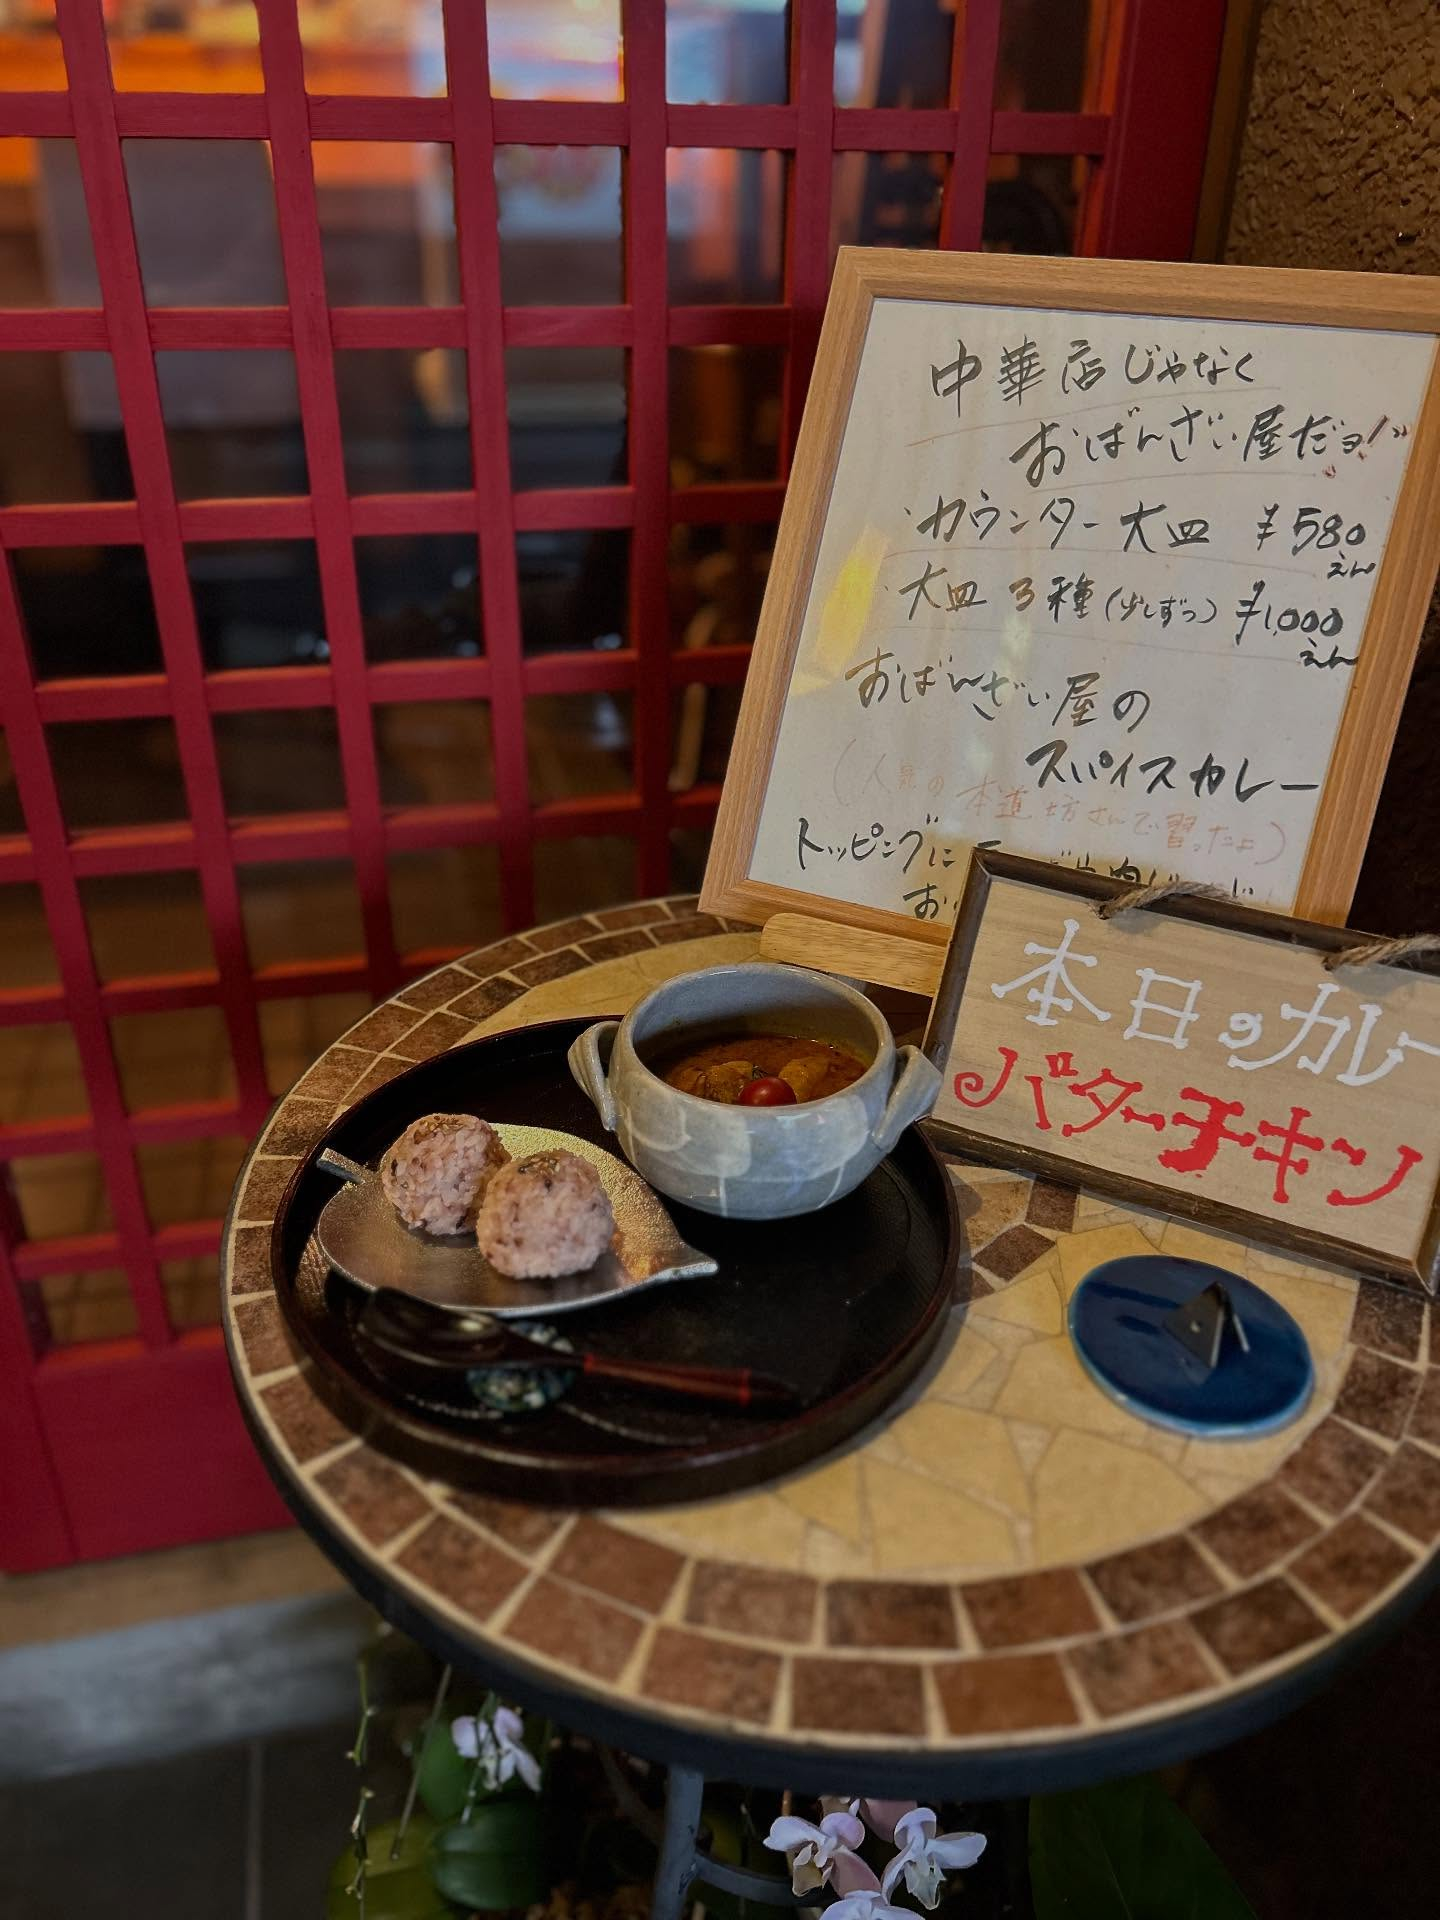 中華店じゃなく
おばんざい屋だヨ!
・カウンター大皿 ¥580
えん
・大皿 3種(少しずつ) ¥1,000
えん
おばんざい屋の
スパイスカレー
(人気の本道坊さんで習ったよ)
トッピングに
お
本日のカレー
バターチキン